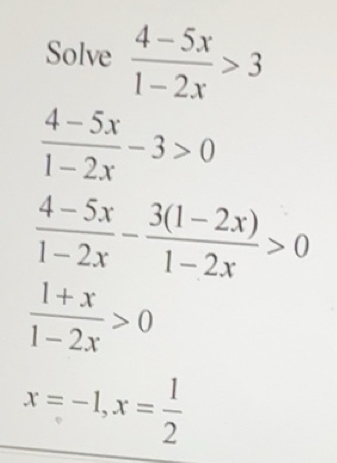 Solve (4 − 5x)/(1 − 2x) > 3
(4 − 5x)/(1 − 2x) − 3 > 0
(4 − 5x)/(1 − 2x) − 3(1 − 2x)/(1 − 2x) > 0
(1 + x)/(1 − 2x) > 0
x = −1, x = 1/2